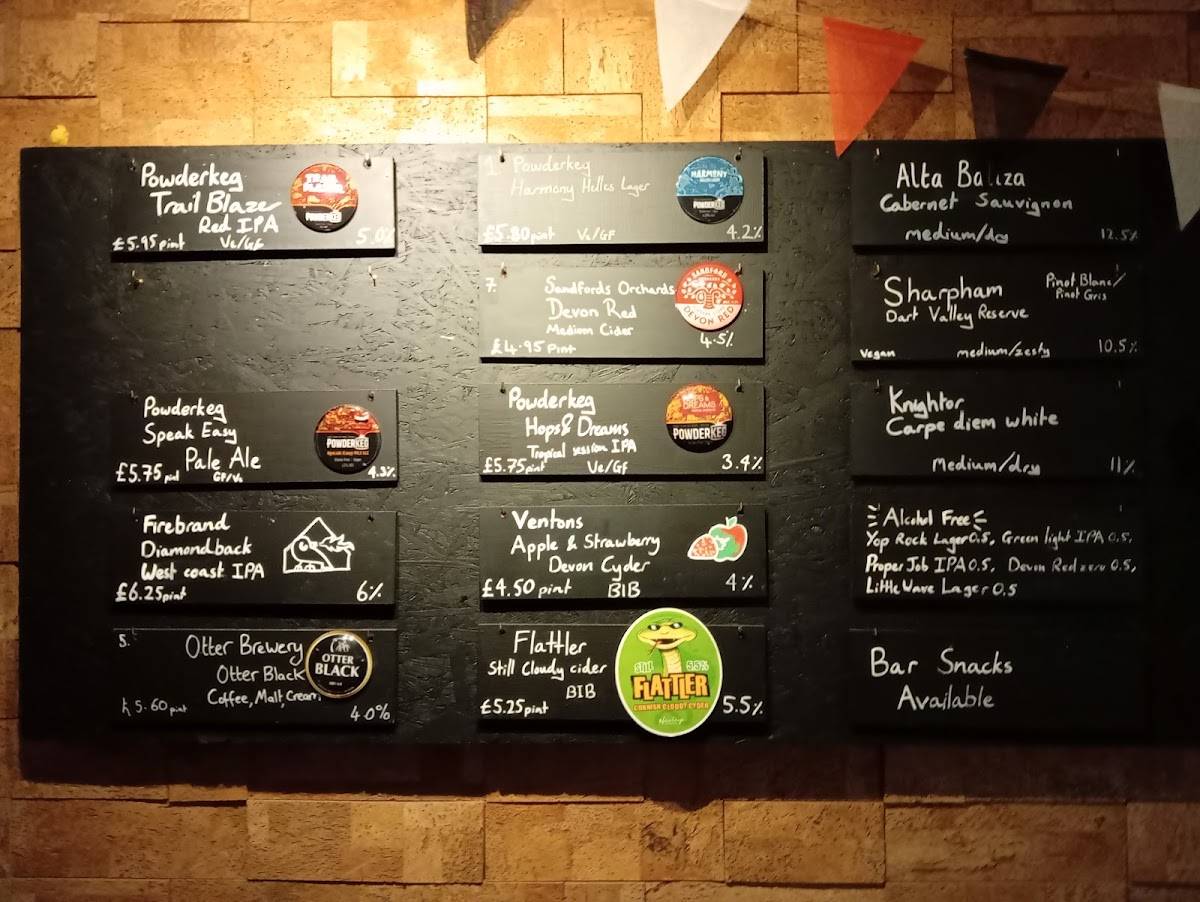 Powderkeg
Trail Blazer
Red IPA
£5.95 pint Ve/GF 5.0%
TRAIL BLAZER
POWDERKEG
Powderkeg
Speak Easy
Pale Ale
£5.75 GF/Ve 4.3%
POWDERKEG
Firebrand
Diamondback
West coast IPA
£6.25 pint 6%
5. Otter Brewery
Otter Black
Coffee, Malt, Cream
£5.60 pint 4.0%
OTTER
BLACK
1. Powderkeg
Harmony Helles Lager
£5.80 pint Ve/GF 4.2%
HARMONY
POWDERKEG
7. Sandfords Orchards
Devon Red
Medium Cider
£4.95 Pint 4.5%
SANDFORD
DEVON RED
Powderkeg
Hops & Dreams
Tropical session IPA
£5.75 pint Ve/GF 3.4%
HOPS &
DREAMS
POWDERKEG
Ventons
Apple & Strawberry
Devon Cyder
£4.50 pint BIB 4%
Flattler
Still Cloudy cider
BIB
£5.25 pint 5.5%
STILL 5.5%
FLATTLER
CORNISH CLOUDY CYDER
Healeys
Alta Baliza
Cabernet Sauvignon
medium/dry 12.5%
Sharpham Pinot Blanc/
Pinot Gris
Dart Valley Reserve
Vegan medium/zesty 10.5%
Knightor
Carpe diem white
Medium/dry 11%
Alcohol Free
Yop Rock Lager 0.5, Green light IPA 0.5,
Proper Job IPA 0.5, Devon Red zero 0.5,
Little Wave Lager 0.5
Bar Snacks
Available